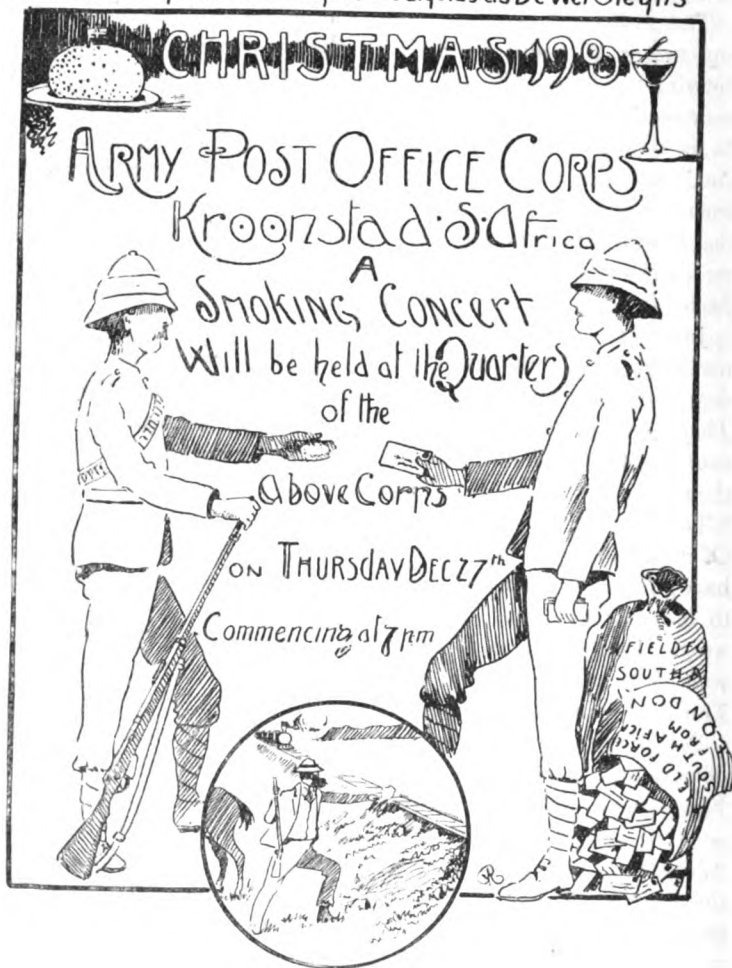 CHRISTMAS 1900
ARMY POST OFFICE CORPS
Kroonstad·S·Africa
A
SMOKING CONCERT
Will be held at the Quarters
of the
Above Corps
ON THURSDAY DEC 27th
Commencing at 7 pm
FIELD FO
SOUTH A
LONDON
FROM
ELD FORCE
SOUTH AFRICA